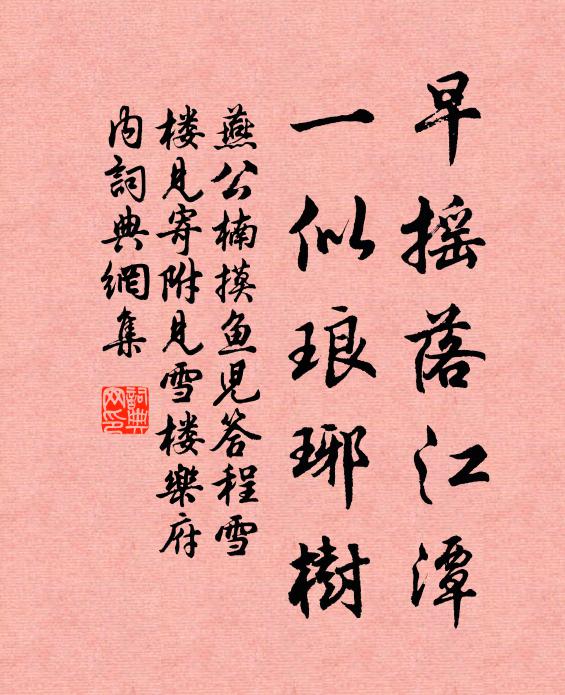 早摇落江潭
一似琅琊樹
燕公楠摸鱼児答程雪
楼見寄附見雪楼樂府
内詞典網集
詞典
网印